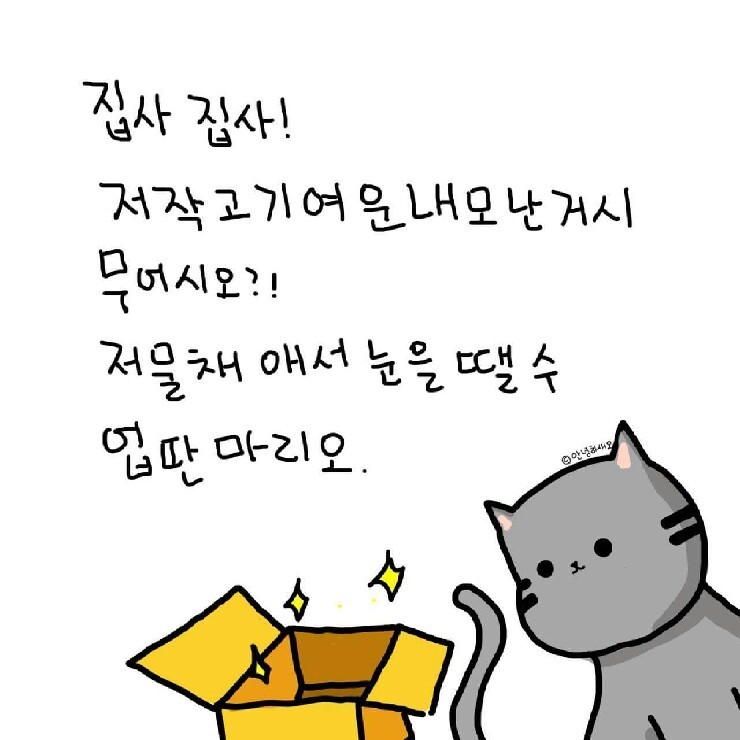 집사 집사!
저작고기여운내모난거시
무어시오?!
저물채 애서눈을 땔 수
업딴 마리오.
©안녕하새오